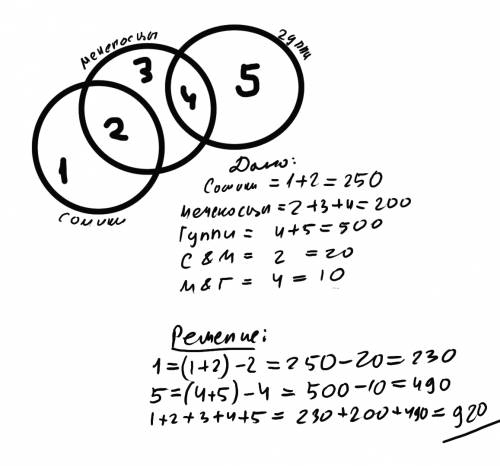 меченосцы
гуппи
3
4
5
2
1
сомики
Дано:
Сомики = 1+2 = 250
меченосцы = 2+3+4 = 200
Гуппи = 4+5 = 500
С & М = 2 = 20
М & Г = 4 = 10
Решение:
1 = (1+2) - 2 = 250 - 20 = 230
5 = (4+5) - 4 = 500 - 10 = 490
1+2+3+4+5 = 230 + 200 + 490 = 920